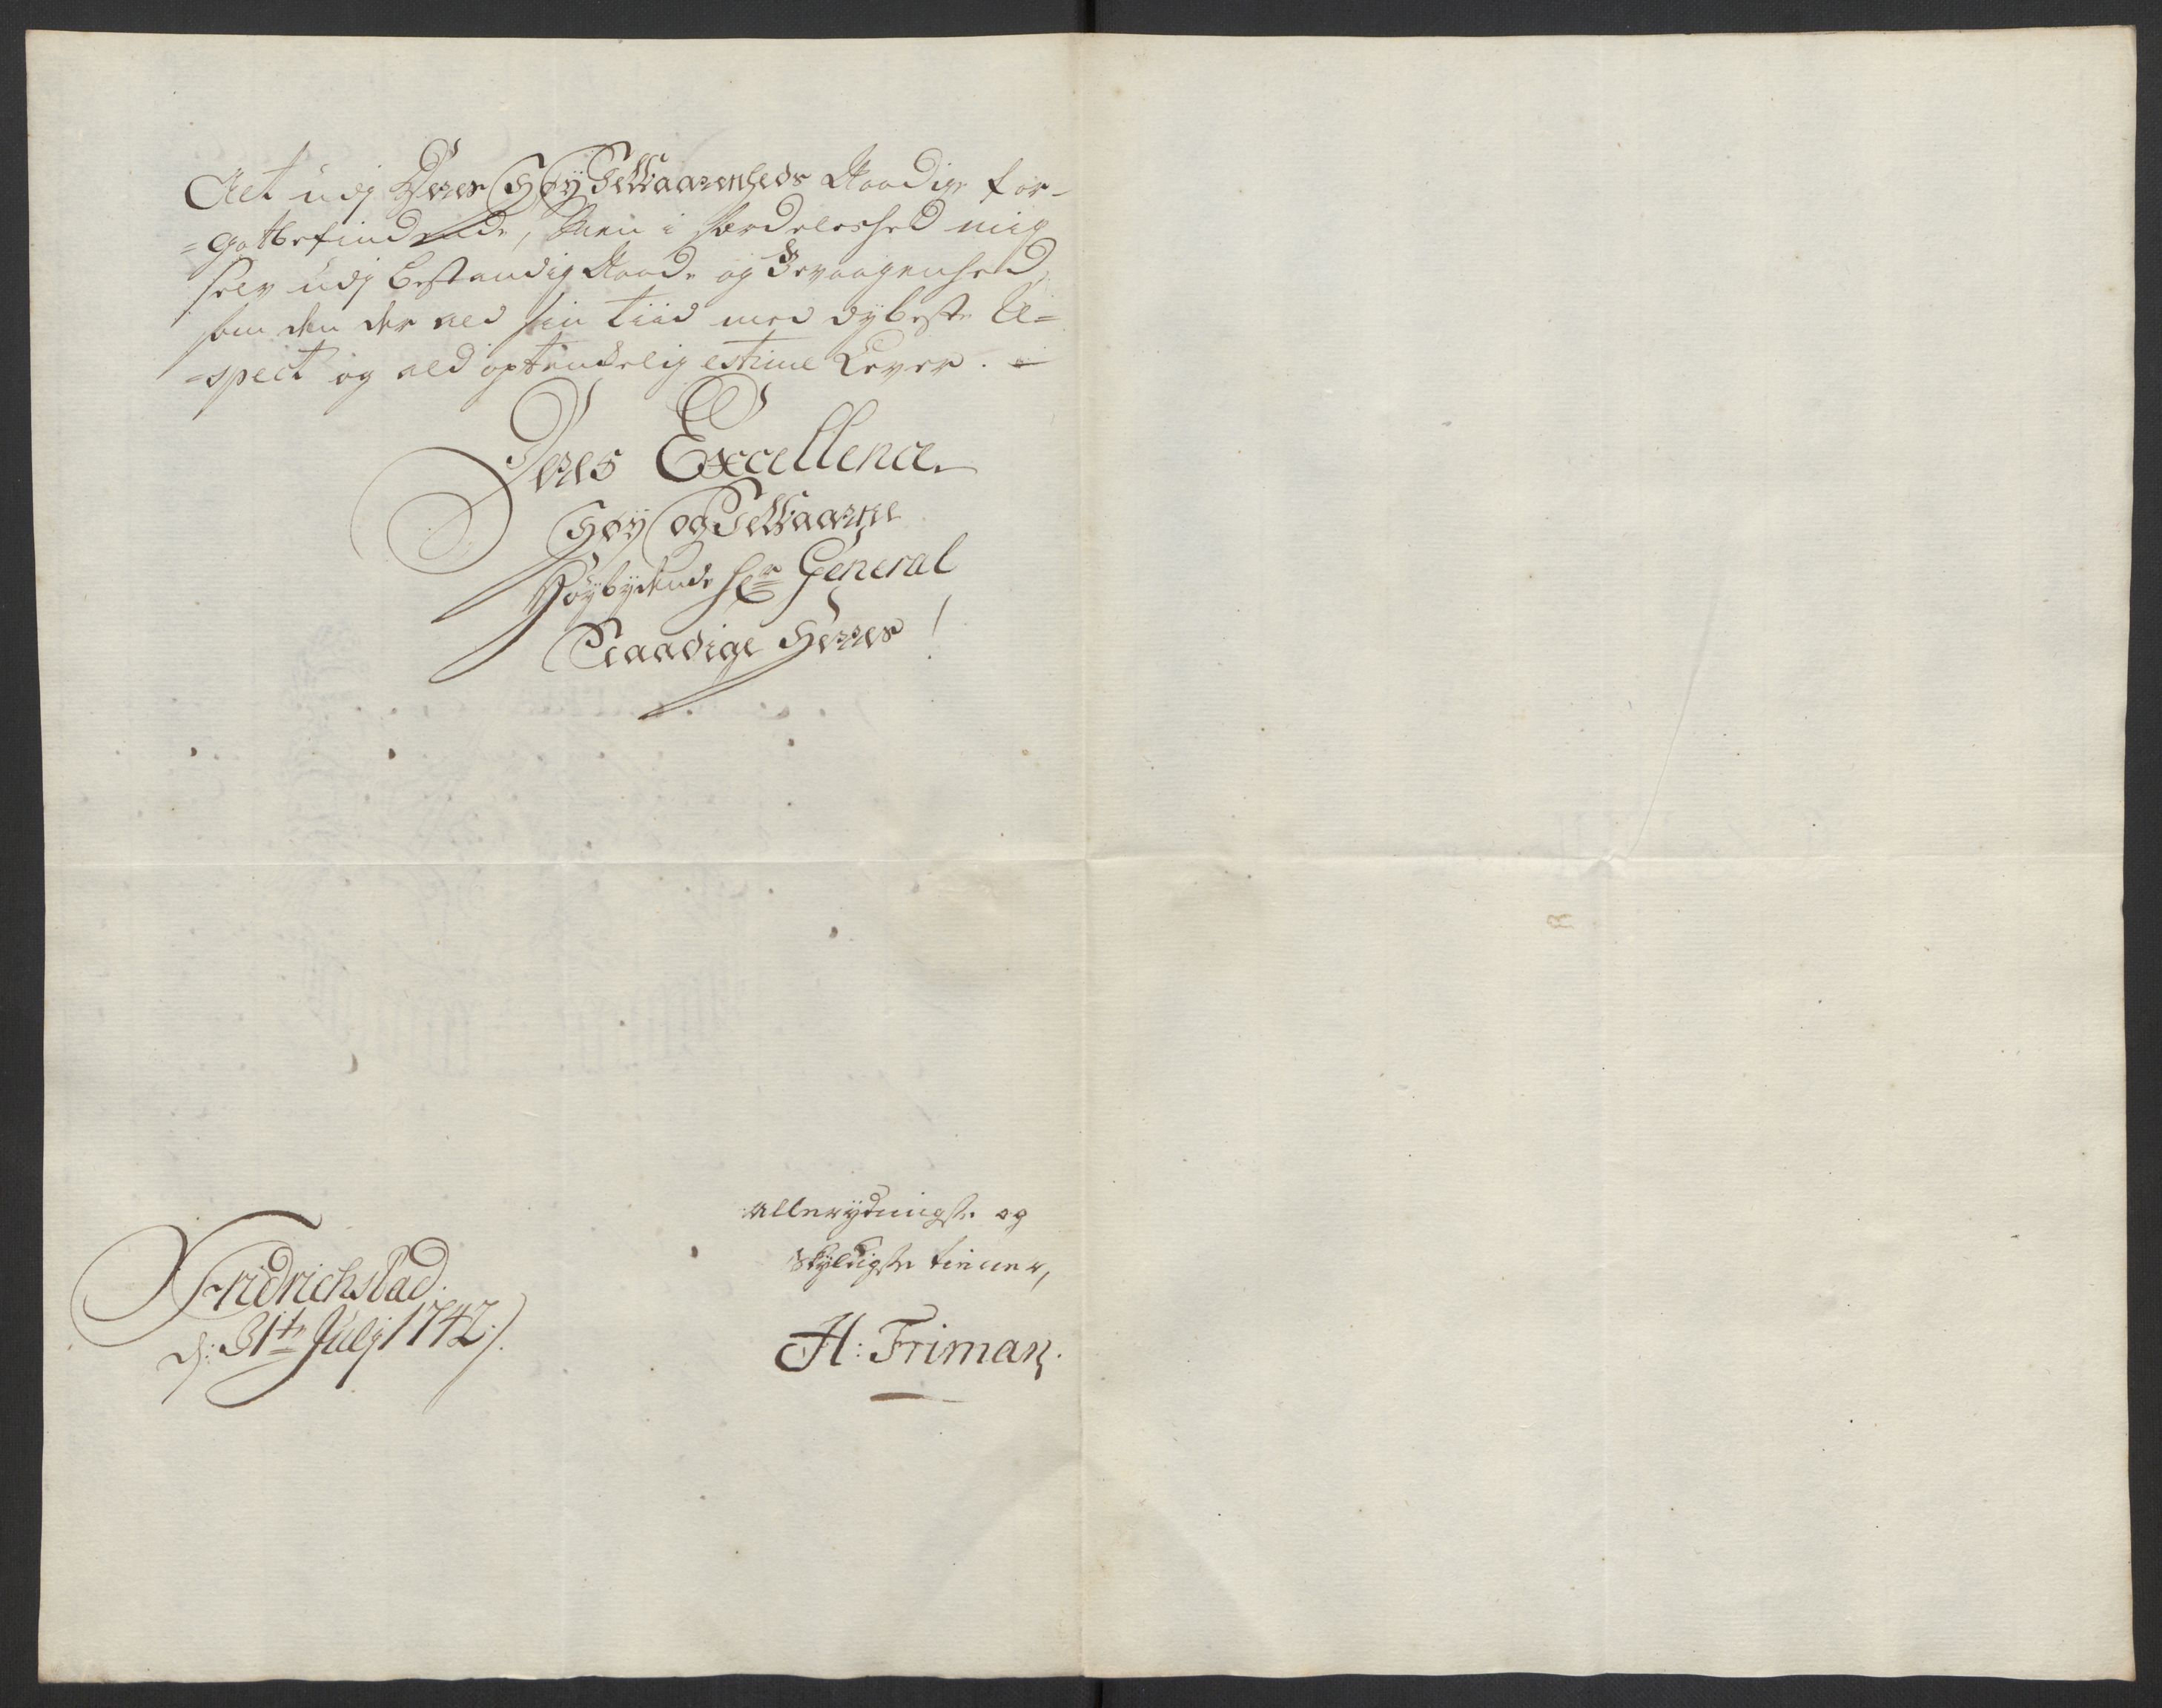 Alt udj Deres Høy Velbaarenheds Naadige for-
=gotbefindende, Men i særdeleshed mig
selv udj bestandig Naade og Bevaagenhed,
som den der ald sin tiid med dybeste Re=
=spect og ald optenkelig estime Lever.
Deres Excellence
Høy og Velbaarne
Høybydende Hr General
Naadige Herre!
allerydmigste og
skyldigste tiener,
H: Friman.
Fridrichstad
d: 31te Julj 1742
R